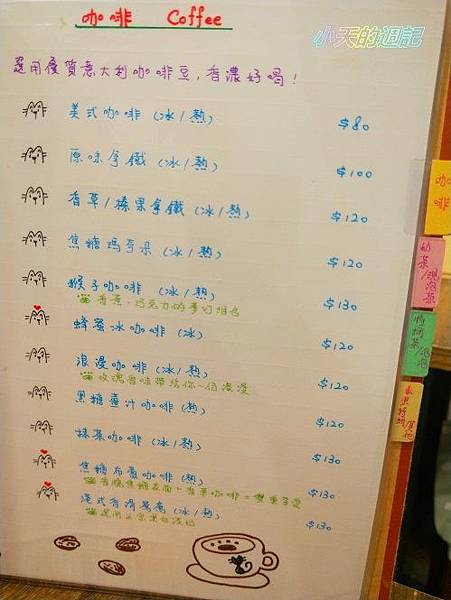 咖啡 Coffee
小天的週記
選用優質意大利咖啡豆，香濃好喝！
美式咖啡 (冰/熱) $80
原味拿鐵 (冰/熱) $100
香草/榛果拿鐵 (冰/熱) $120
焦糖瑪奇朵 (冰/熱) $120
猴子咖啡 (冰/熱) $130
香蕉、巧克力的夢幻組合
蜂蜜冰咖啡 (冰) $120
浪漫咖啡 (冰/熱) $120
玫瑰香味帶給你一個浪漫
黑糖薑汁咖啡 (熱) $120
榛果咖啡 (冰/熱) $130
焦糖布蕾咖啡 (熱) $130
香脆焦糖表面+香草咖啡=雙重享受
港式香滑鴛鴦 (冰/熱) $130
咖啡
奶茶/現泡茶